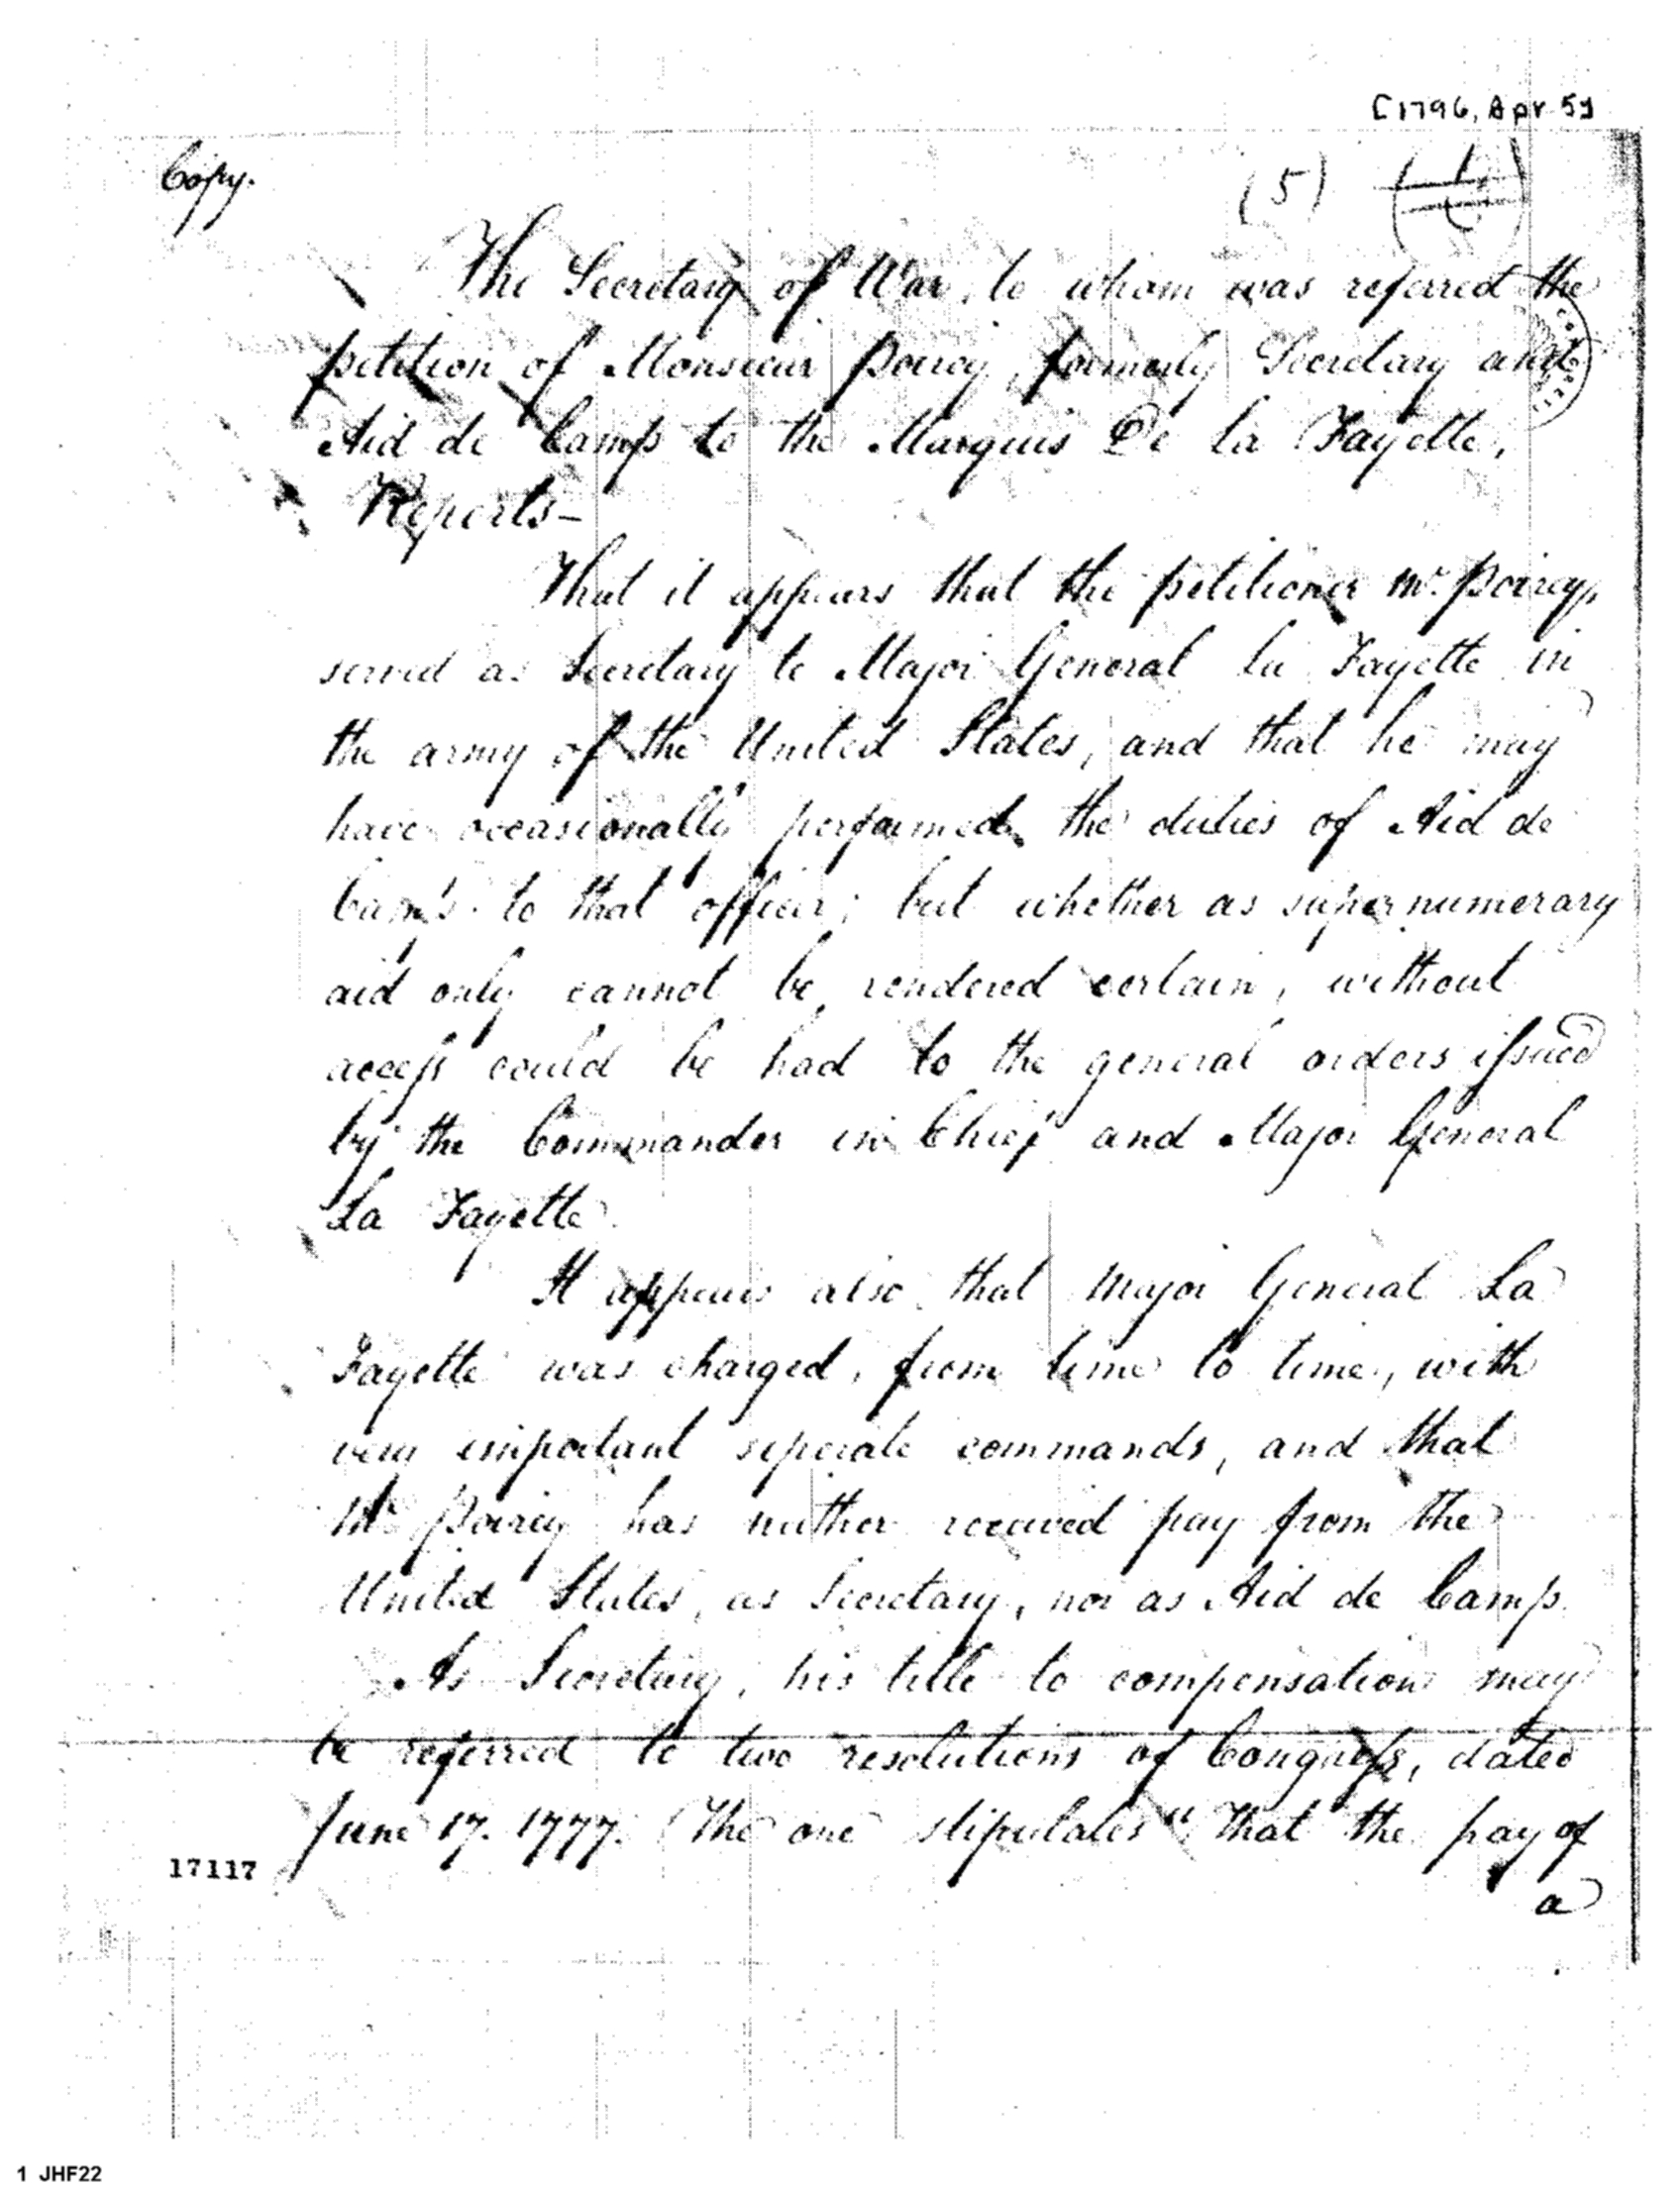 [1796, Apr 5]
Copy.
(5)
The Secretary of War, to whom was referred the
petition of Monsieur Poirey, formerly Secretary and
Aid de Camp to the Marquis De la Fayette,
Reports-
That it appears that the petitioner Mr. Poirey,
served as Secretary to Major General La Fayette in
the army of the United States, and that he may
have occasionally performed the duties of Aid de
Camp to that officer; but whether as supernumerary
aid only cannot be rendered certain, without
access could be had to the general orders issued
by the Commander in Chief and Major General
La Fayette.
It appears also that Major General La
Fayette was charged, from time to time, with
very important seperate commands, and that
Mr Poirey has neither received pay from the
United States, as Secretary, nor as Aid de Camp.
As Secretary, his title to compensation may
be referred to two resolutions of Congress, dated
June 17. 1777. The one stipulates "That the pay of
a
17117
1 JHF22